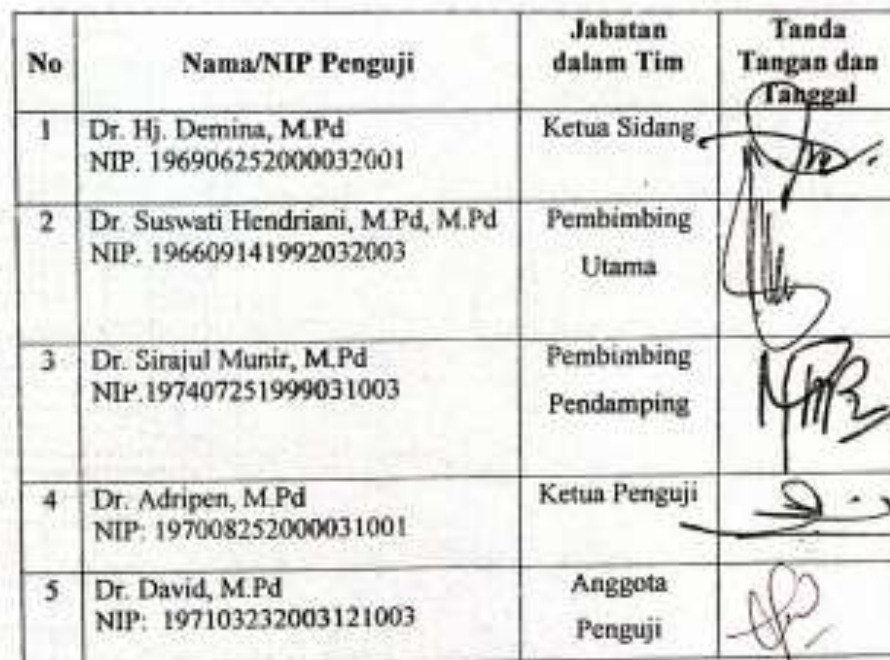 No
Nama/NIP Penguji
Jabatan
dalam Tim
Tanda
Tangan dan
Tanggal
1
Dr. Hj. Demina, M.Pd
NIP. 196906252000032001
Ketua Sidang
2
Dr. Suswati Hendriani, M.Pd, M.Pd
NIP. 196609141992032003
Pembimbing
Utama
3
Dr. Sirajul Munir, M.Pd
NIP.197407251999031003
Pembimbing
Pendamping
4
Dr. Adripen, M.Pd
NIP: 197008252000031001
Ketua Penguji
5
Dr. David, M.Pd
NIP: 197103232003121003
Anggota
Penguji